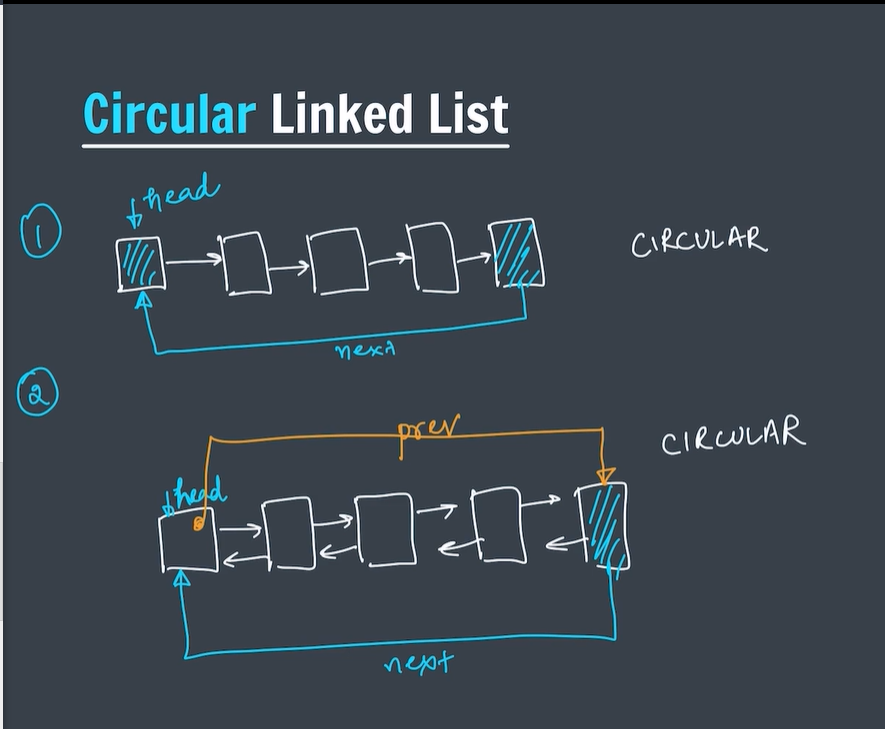 Circular Linked List
head
1
CIRCULAR
next
2
prev
CIRCULAR
head
next